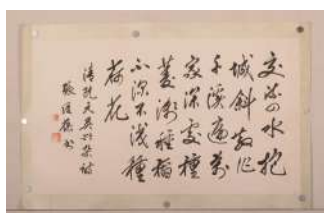 交流四水抱
城斜散作
千溪遍萬
家深處種
菱淺種稻
不深不淺種
荷花
清阮元吴兴杂詩
書